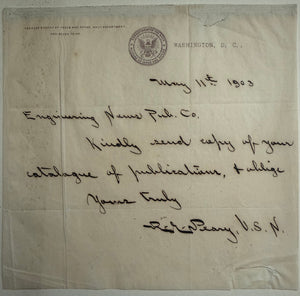 WASHINGTON, D. C.,
May 11th 1903
Engineering News Pub. Co.
Kindly send copy of your
catalogue of publications, & oblige
Yours truly
R. E. Peary, U. S. N.